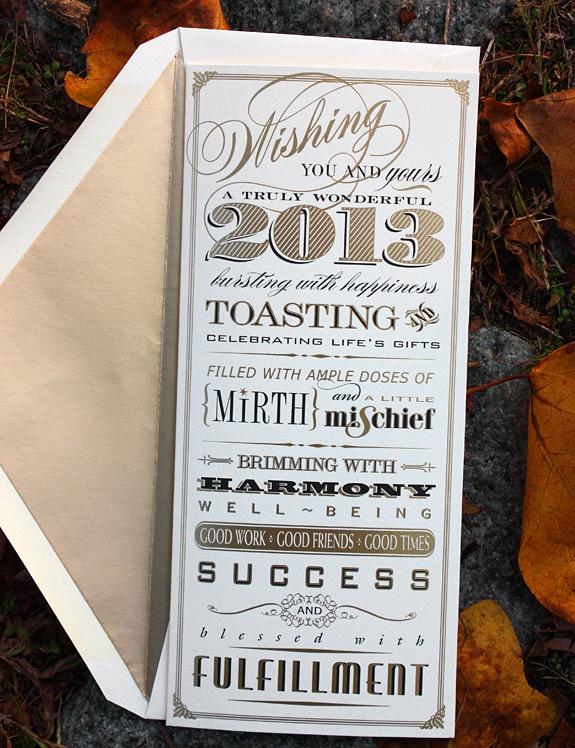 Wishing
YOU AND yours
A TRULY WONDERFUL
2013
bursting with happiness
TOASTING AND
CELEBRATING LIFE'S GIFTS
FILLED WITH AMPLE DOSES OF
{MiRTH} and A LITTLE
miSchief
BRIMMING WITH
HARMONY
WELL~BEING
GOOD WORK · GOOD FRIENDS · GOOD TIMES
SUCCESS
AND
blessed with
FULFILLMENT